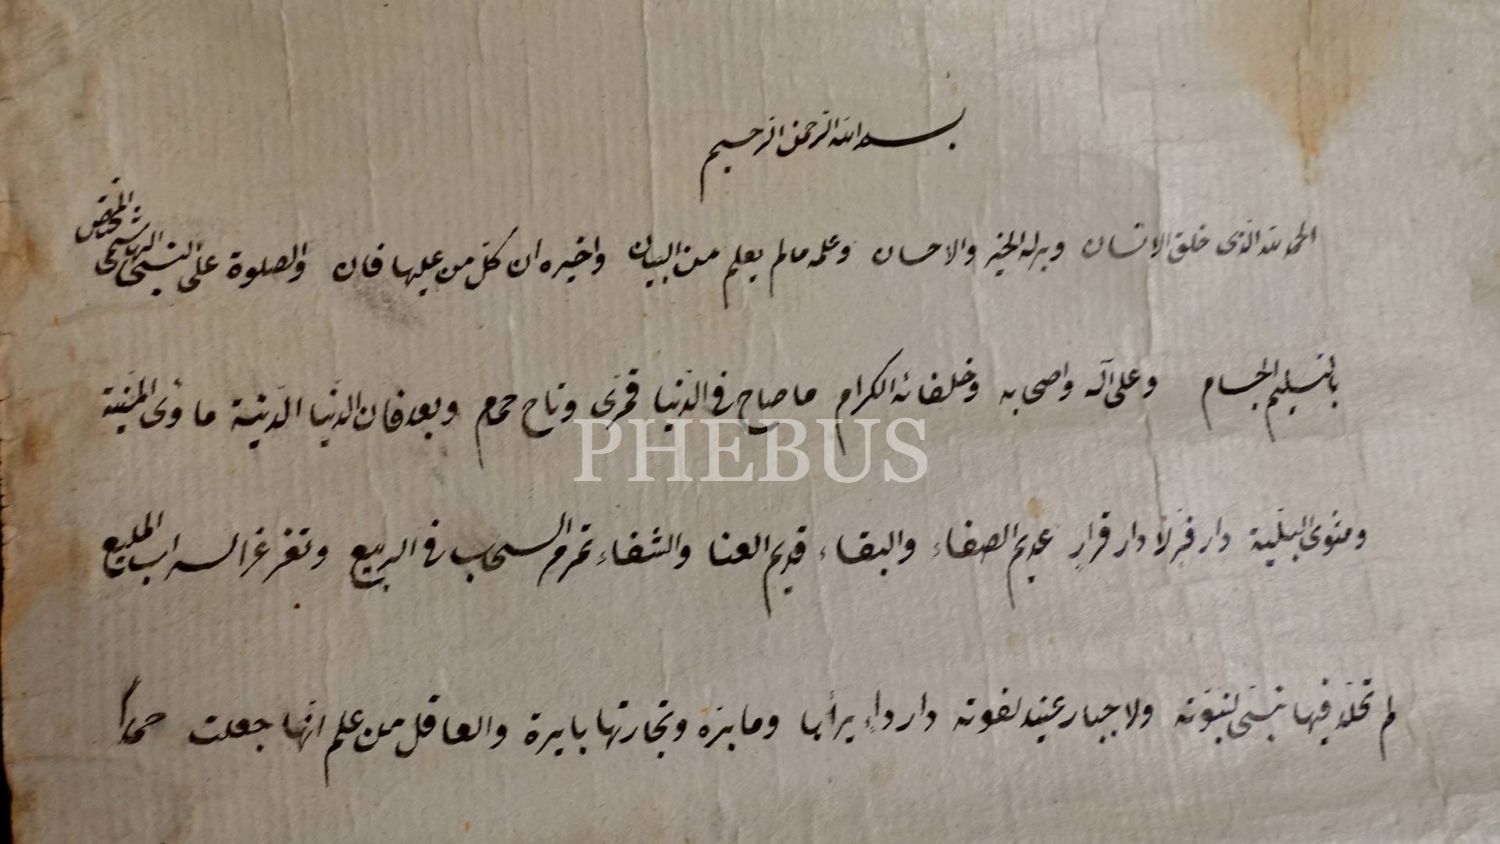 بسم الله الرحمن الرحيم
الحمد لله الذى خلق الانسان وبر له الخير والاحسان وعلمه مالم يعلم من البيان واخبره ان كلّ من عليها فان والصلوة على النبىّ الهاشمى المختص
بالتسليم وعلى آله واصحابه وخلفائه الكرام ما صاح فى الدّنيا قمرى وناح حمام وبعد فان الدنيا الدّنية مأوى المنيّة
ومثوى البليّة دار فرّ لا دار قرار عديم الصفاء والبقاء قديم العنا والشقاء تمر مر السحاب فى الربيع وتغر غر السراب
لم تخلد فيها نبىّ لنبوّته ولا جبار عنيد لقوته دار داء وتجارتها بايرة والعاقل من علم انّها جعلت
PHEBUS